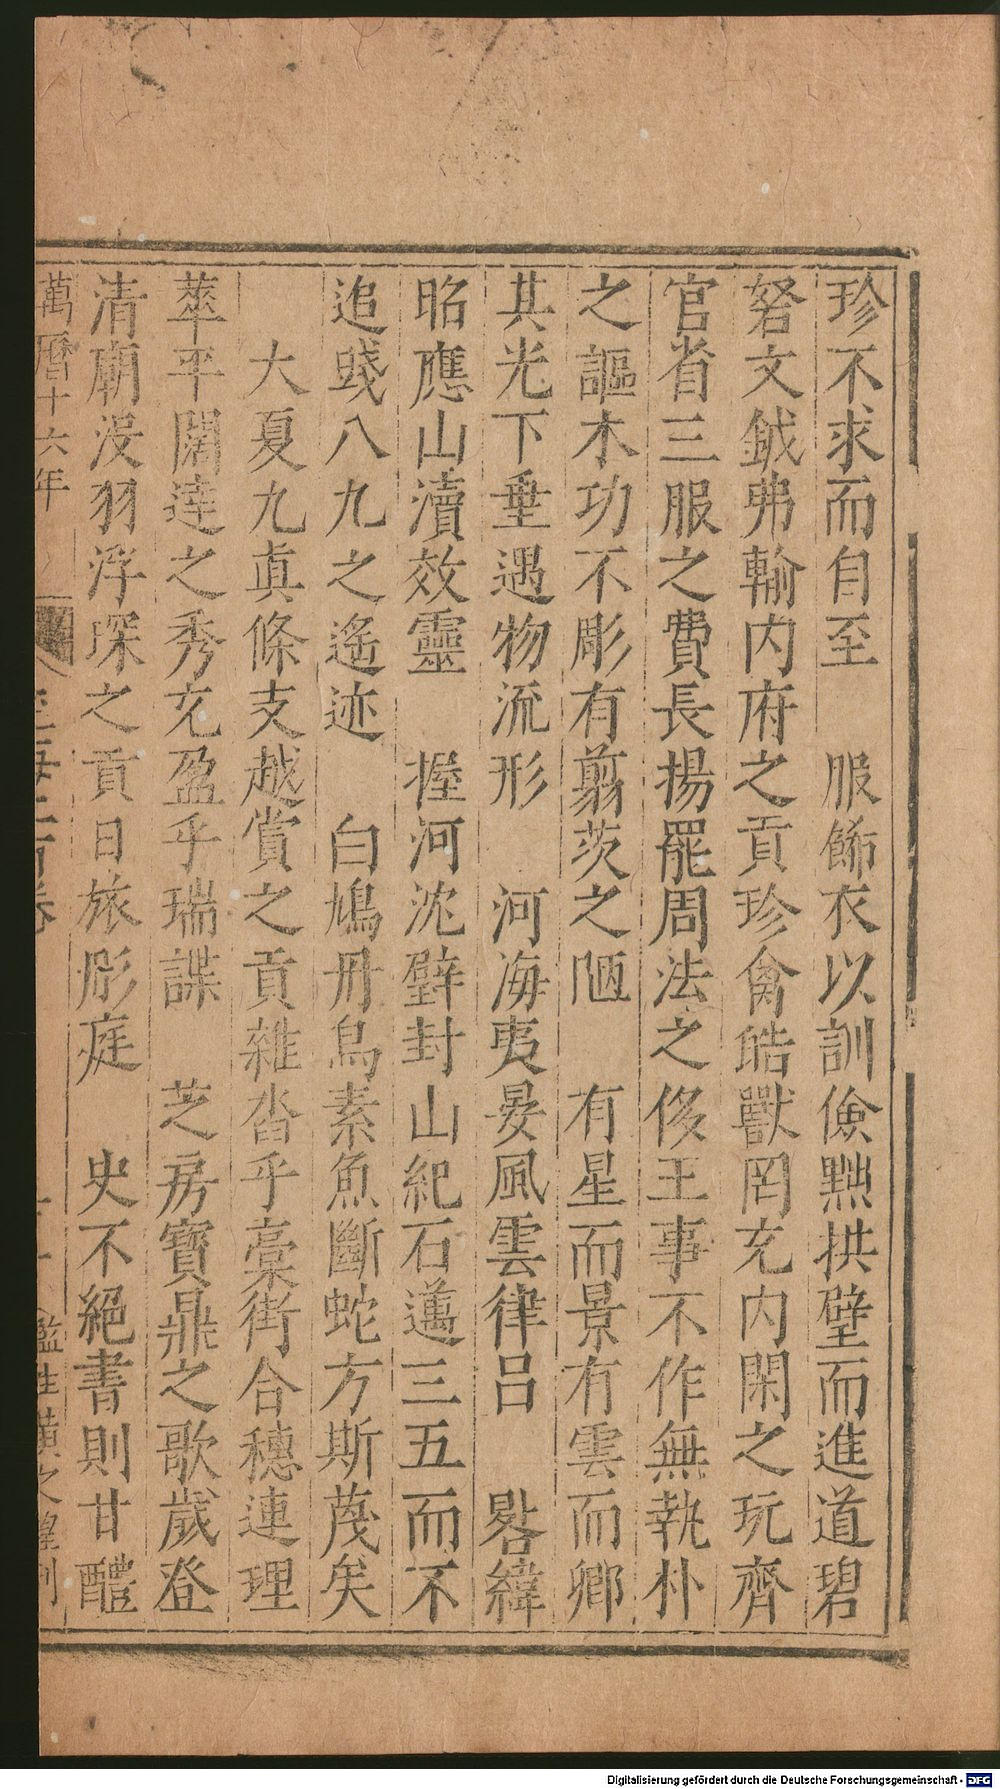 珍不求而自至　服飾衣以訓儉黜拱璧而進道碧
砮文鉞弗輸内府之貢珍禽皓獸罔充内閑之玩齊
官省三服之費長揚罷周法之侈王事不作無執朴
之謳木功不彫有翦茨之陋　有星而景有雲而卿
其光下垂遇物流形　河海夷晏風雲律呂　晷緯
昭應山瀆效靈　握河沈璧封山紀石邁三五而不
追踐八九之遙迹　白鳩丹烏素魚斷蛇方斯蔑矣
大夏九真條支越賞之貢雜沓乎藁街合穗連理
華平闊達之秀充盈乎瑞諜　芝房寶鼎之歌歲登
清廟浸羽浮琛之貢日旅彤庭　史不絕書則甘醴
萬曆十六年
玉海二百卷
監生黃之煌刊
Digitalisierung gefördert durch die Deutsche Forschungsgemeinschaft - DFG